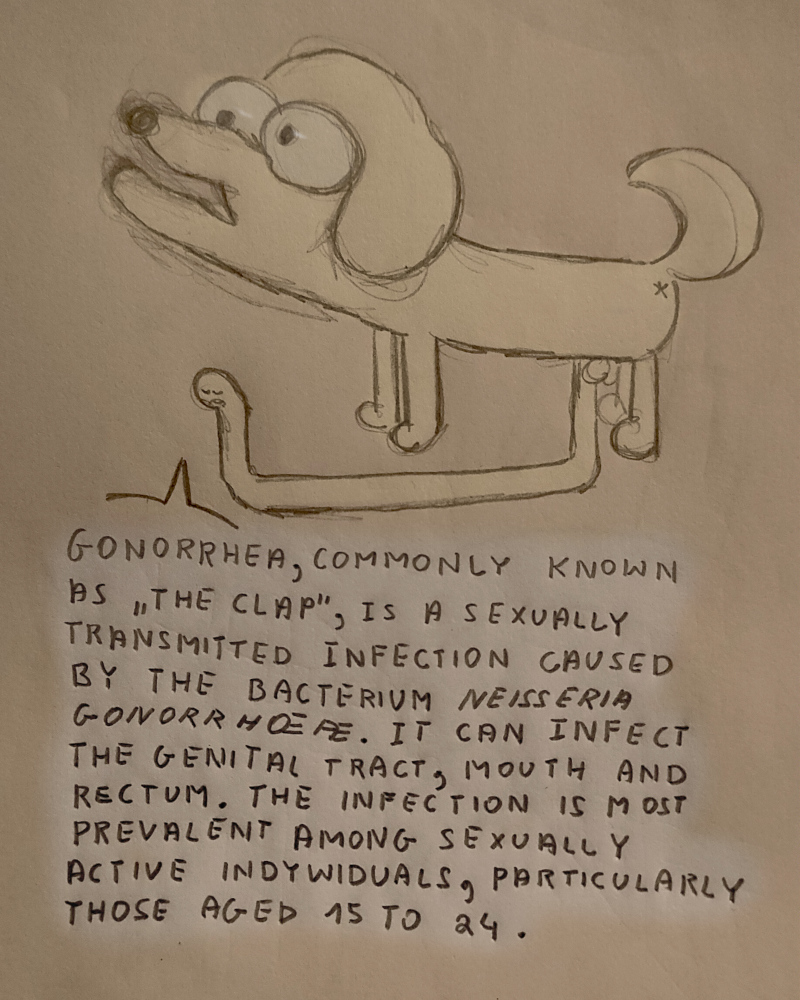 GONORRHEA, COMMONLY KNOWN
AS „THE CLAP", IS A SEXUALLY
TRANSMITTED INFECTION CAUSED
BY THE BACTERIUM NEISSERIA
GONORRHOEAE. IT CAN INFECT
THE GENITAL TRACT, MOUTH AND
RECTUM. THE INFECTION IS MOST
PREVALENT AMONG SEXUALLY
ACTIVE INDYWIDUALS, PARTICULARLY
THOSE AGED 15 TO 24.